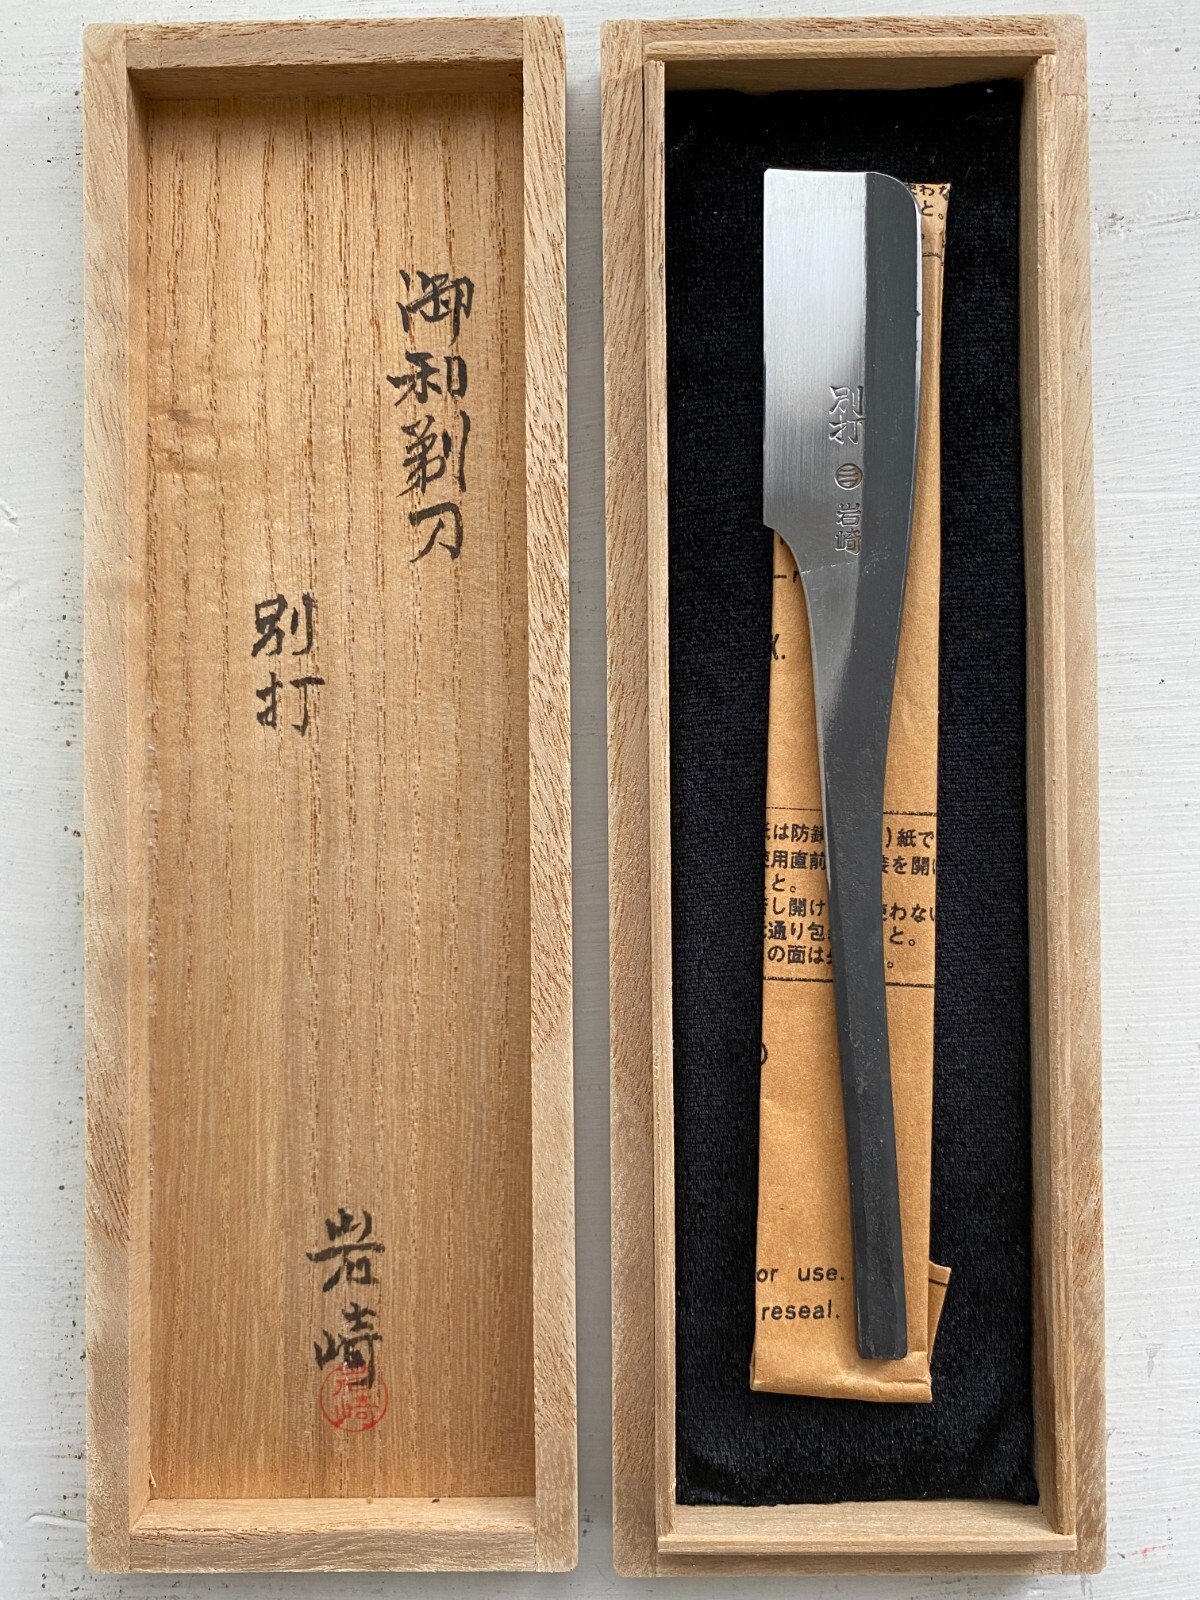 御和剃刀
別打
岩崎
岩崎
別打
㊂
岩崎
わな
と。
は防錆
)紙で
用直前
を開
と。
し開け
わない
通り包
と。
の面は
or use.
reseal.